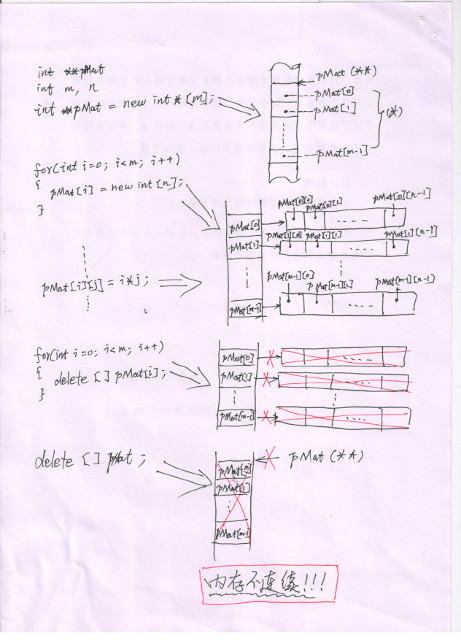 int **pMat
int m, n
int **pMat = new int * [m];
pMat (**)
pMat[0]
pMat[1]
(*)
pMat[m-1]
for(int i=0; i<m; i++)
{ pMat[i] = new int[n];
}
pMat[0]
pMat[1]
pMat[m-1]
pMat[0][0]
pMat[0][1]
pMat[0][n-1]
pMat[1][0]
pMat[1][1]
pMat[1][n-1]
pMat[m-1][0]
pMat[m-1][1]
pMat[m-1][n-1]
pMat[i][j] = i*j;
for(int i=0; i<m; i++)
{ delete [] pMat[i];
}
pMat[0]
pMat[1]
pMat[m-1]
delete [] pMat;
pMat (**)
pMat[0]
pMat[1]
pMat[m-1]
内存不连续!!!